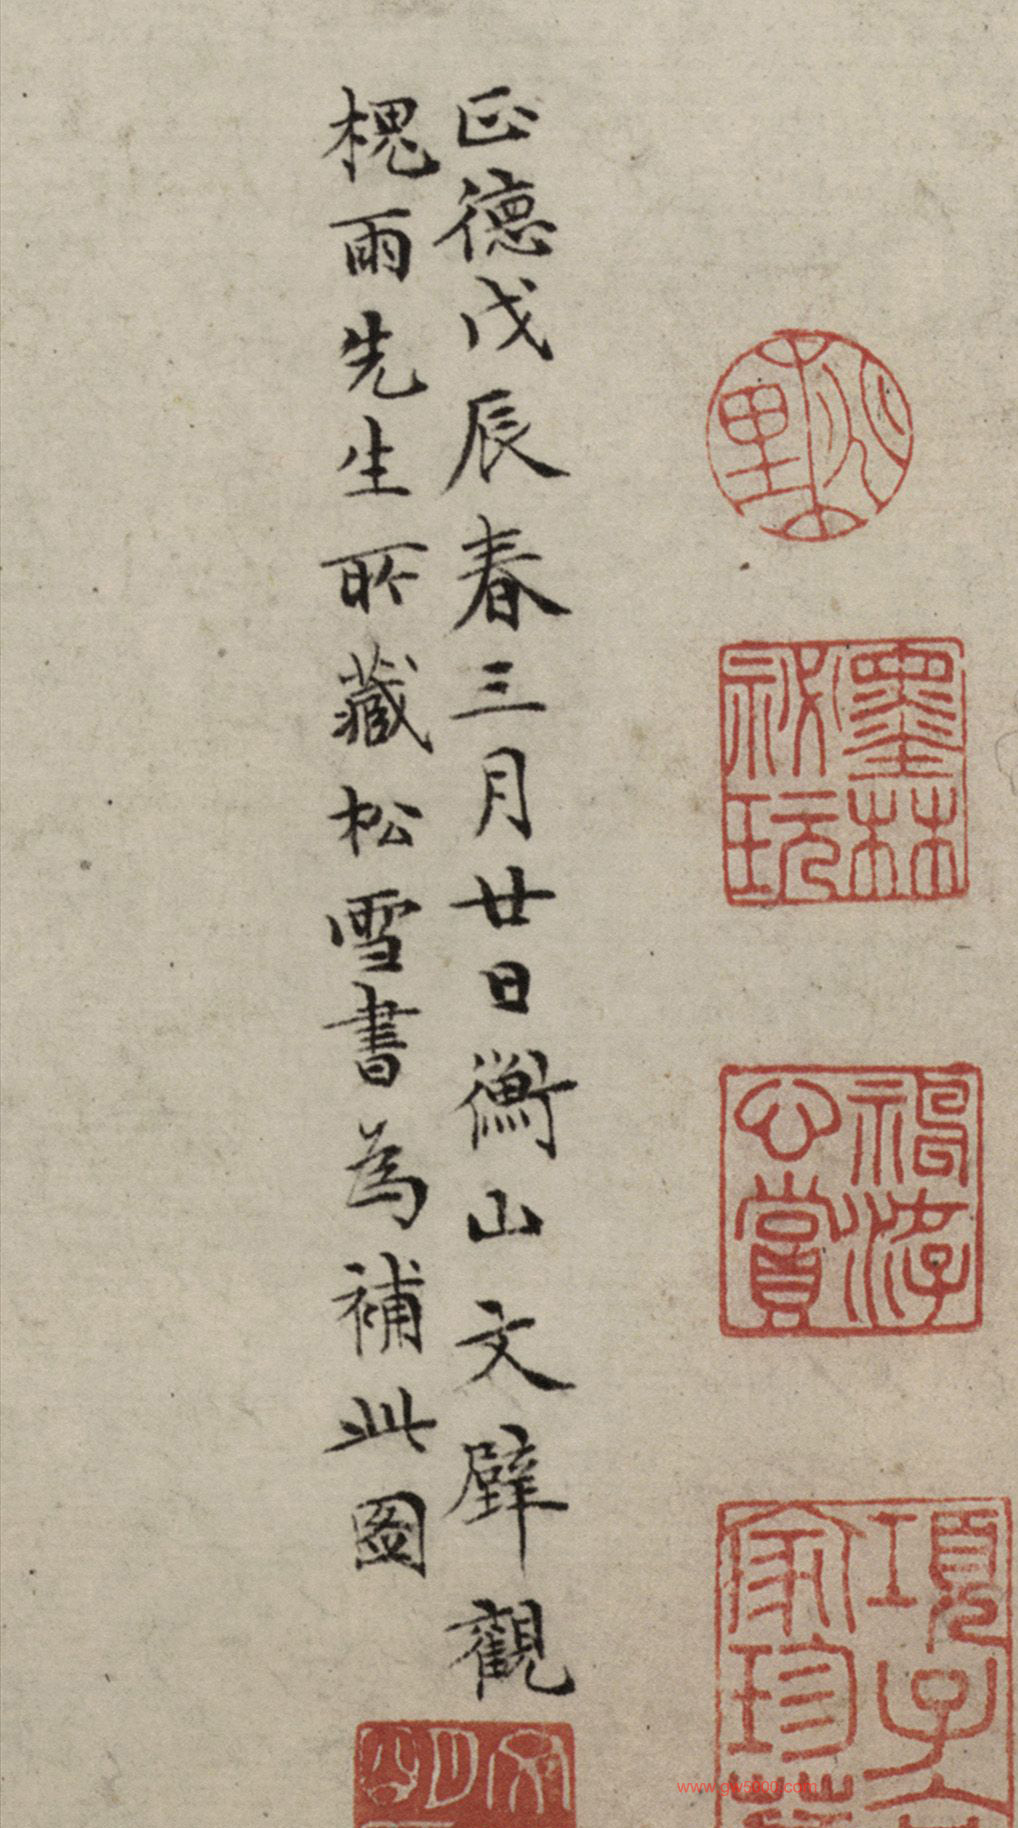 桃里
墨林
祕玩
神游
心賞
項子京
家珍藏
正德戊辰春三月廿日衡山文壁觀
槐雨先生所藏松雪書為補此圖
www.gw5000.com